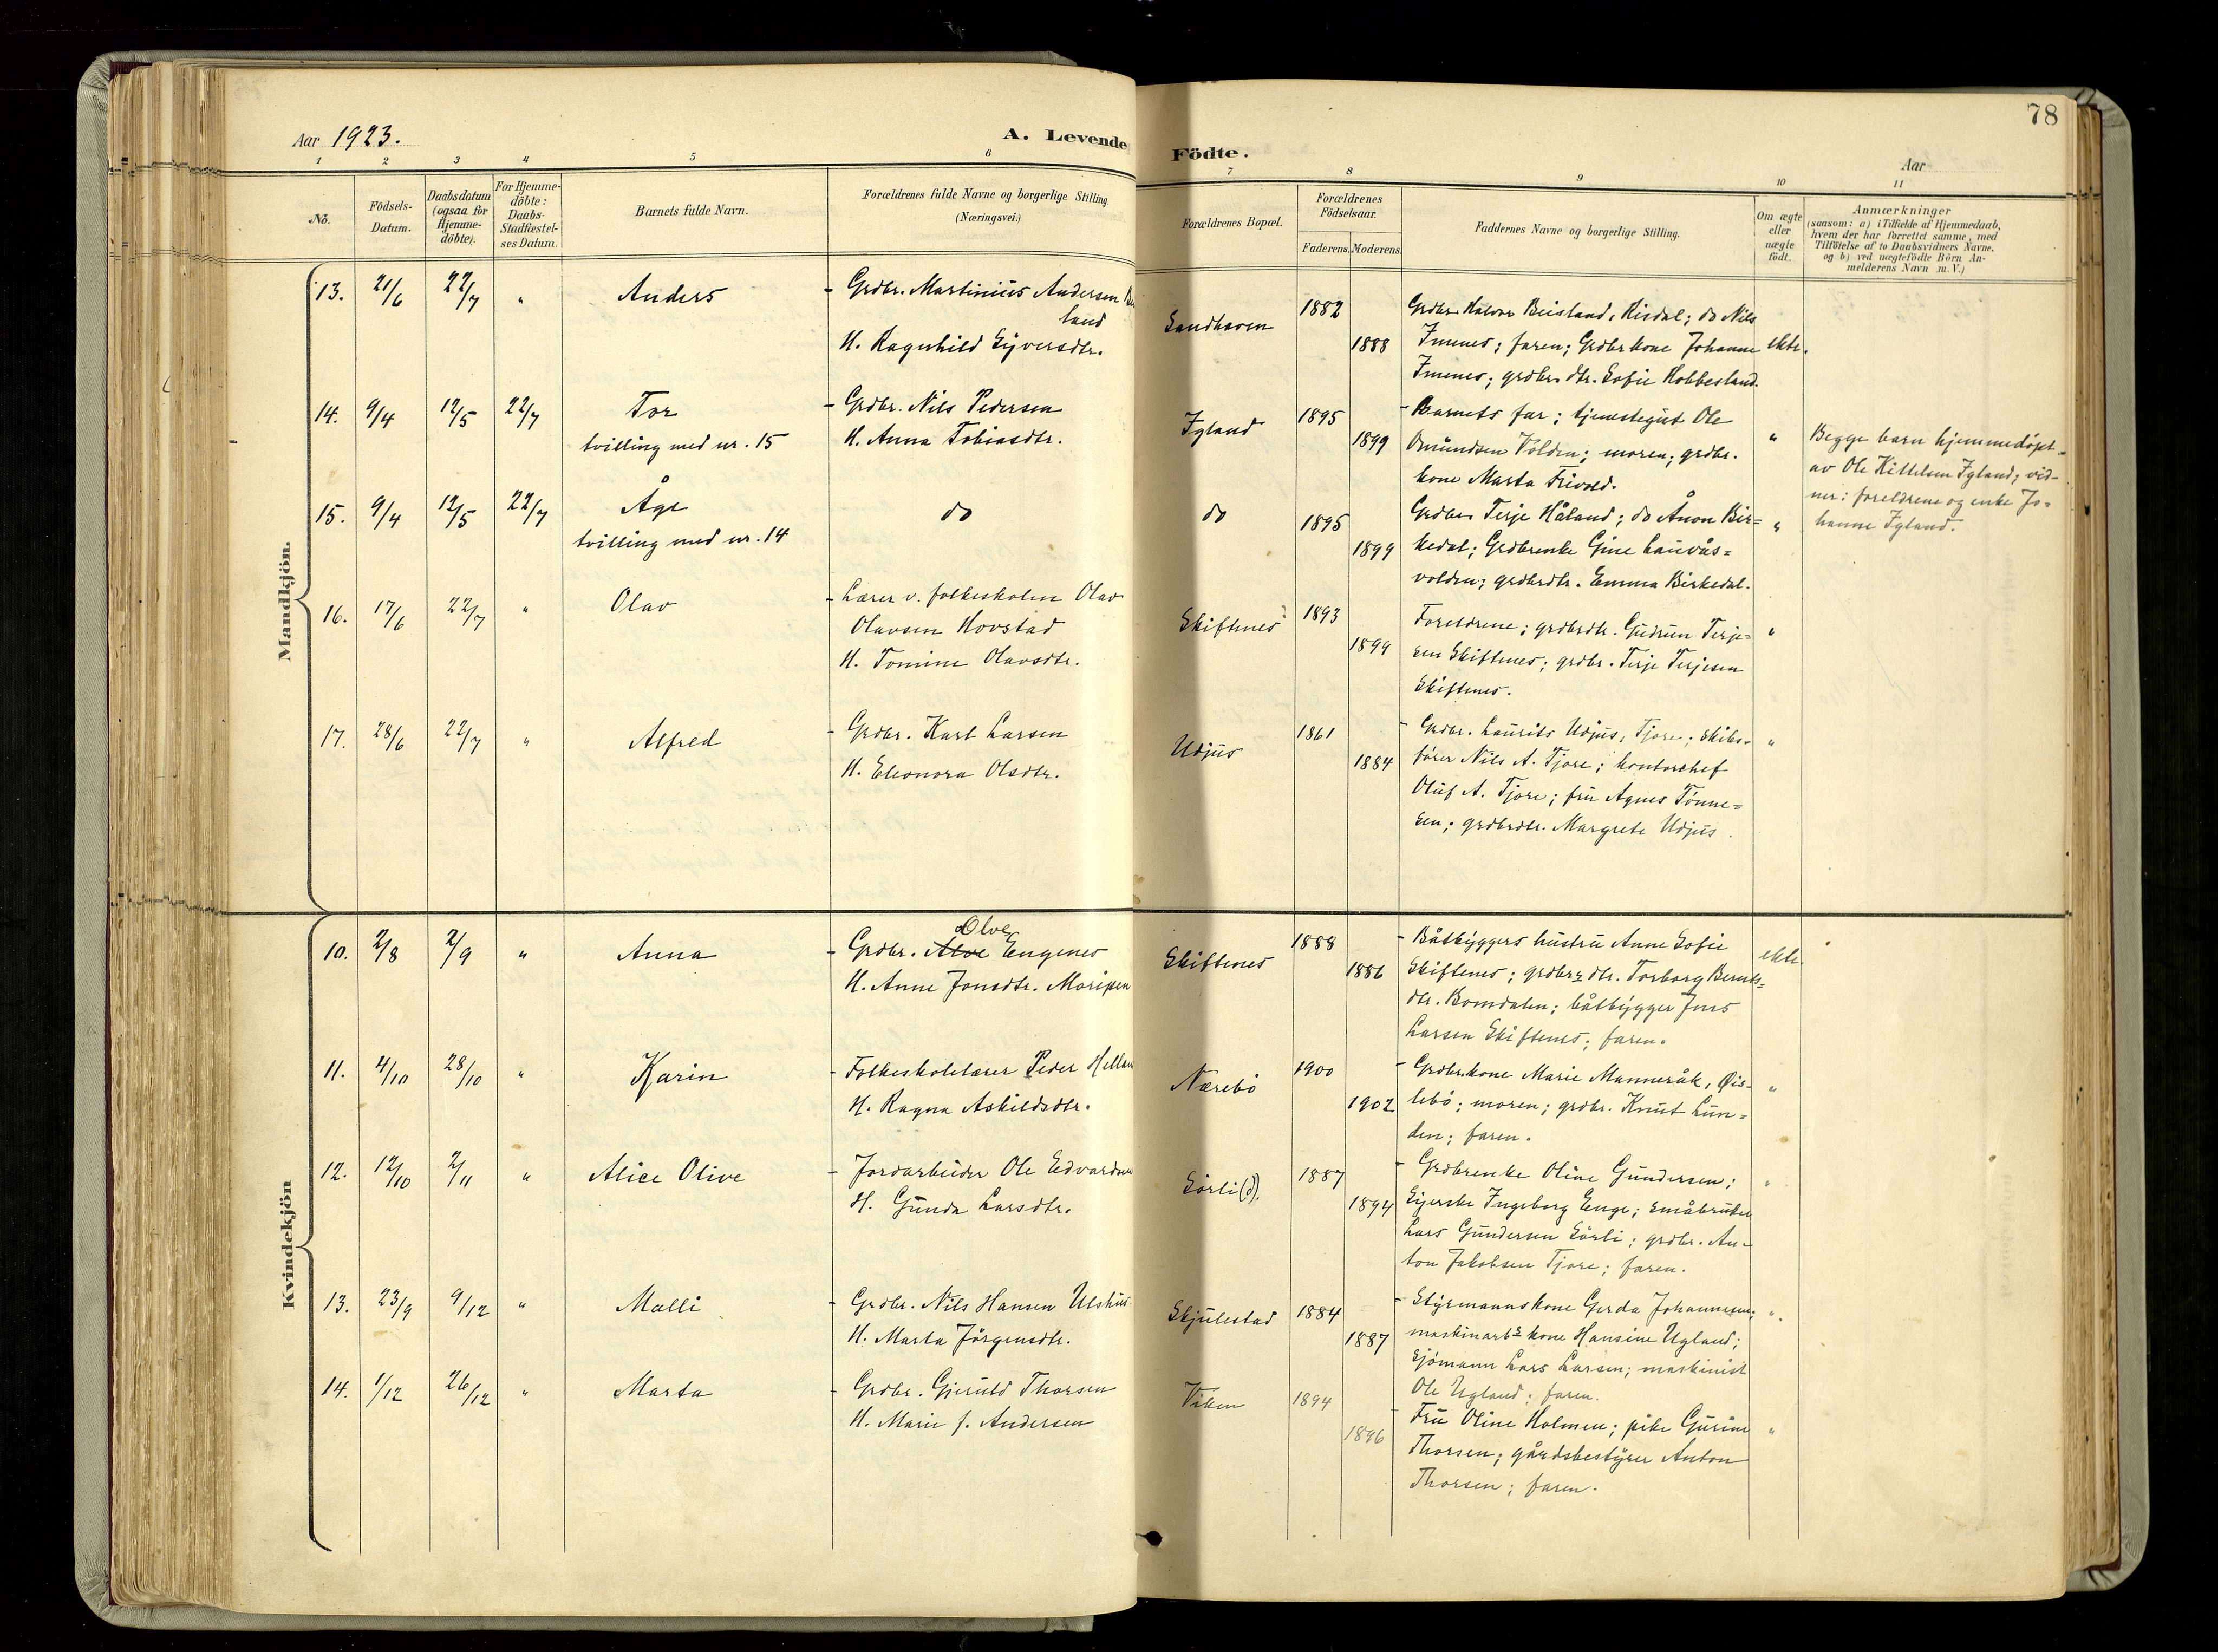 78
Aar 1923.
A. Levende
Födte.
Aar
1 2 3 4 5 6 7 8 9 10 11
No.
Födsels-
Datum.
Daabsdatum
(ogsaa for
Hjemme-
döbte).
For Hjemme-
döbte:
Daabs-
Stadfæstel-
ses Datum.
Barnets fulde Navn.
Forældrenes fulde Navne og borgerlige Stilling.
(Næringsvei.)
Forældrenes Bopæl.
Forældrenes
Födselsaar.
Faderens. Moderens.
Faddernes Navne og borgerlige Stilling.
Om ægte
eller
uægte
födt.
Anmærkninger
(saasom: a) i Tilfælde af Hjemmedaab,
hvem der har forrettet samme, med
Tilföielse af to Daabsvidners Navne,
og b) ved uægtefödte Börn An-
melderens Navn m. V.)
Mandkjön.
13. 21/6 22/7 " Anders
- Grdbr. Martinius Andersen
land
H. Ragnhild Syversdtr.
Sandhaven
1882
1888
Grdbr. Halvor Beisland, Risdal; do Nils
Imenes; faren; Grdbr kone Johanne
Imenes; grdbr. dtr. Sofie Hobbesland.
ekte.
14. 9/4 12/5 22/7 Tor
tvilling med nr. 15
- Grdbr. Nils Pedersen
H. Anna Tobiasdtr.
Igland
1895
1899
- Barnets far; tjenstegut Ole
Omundsen Volden; moren; grdbr.
kone Marta Frivold.
"
Begge barn hjemmedöpt
av Ole Kittelsen Igland; vid-
ner: foreldrene og enke Jo-
hanne Igland.
15. 9/4 12/5 22/7 Åge
tvilling med nr. 14
do
do
1895
1899
Grdbr. Terje Håland; do Ånon Bir=
kedal; Grdbrenke Gine Lauvås=
volden; grdbrdtr. Emma Birkedal.
"
16. 17/6 22/7 " Olav
- Lærer v. folkeskolen Olav
Olavsen Hovstad
H. Tomine Olavsdtr.
Skiftenes
1893
1899
Foreldrene; grdbrdtr. Gudrun Terje=
sen Skiftenes; grdbr. Terje Terjesen
Skiftenes.
"
17. 28/6 22/7 " Alfred
- Grdbr. Karl Larsen
H. Eleonora Olsdtr.
Udjus
1861
1884
- Grdbr. Laurits Udjus, Tjore; skibs-
förer Nils A. Tjore; kontorchef
Oluf A. Tjore; fru Agnes Tönne=
sen; grdbrdtr. Margrete Udjus.
"
Kvindekjön
10. 2/8 2/9 " Anna
Olve
- Grdbr. Alve Engenes
H. Anne Jonsdtr.
Skiftenes
1888
1886
- Båtbyggers hustru Anne Sofie
Skiftenes; grdbrs dtr. Torborg Bernts=
dtr. Bomdalen; båtbygger Jens
Larsen Skiftenes; faren.
ekte.
11. 4/10 28/10 " Karin
- Folkeskolelærer Peder
H. Ragna Askildsdtr.
Nærebö
1900
1902
- Grdbr.kone Marie Manneråk, Øis-
lebö; moren; grdbr. Knut Lun=
den; faren.
"
12. 12/10 2/11 " Alice Olive
- Jordarbeider Ole Edvardsen
H. Gunda Larsdtr.
Sörli(d).
1887
1894
- Grdbrenke Oline Gundersen;
Eyerske Ingeborg Enge; småbruker
Lars Gundersen Sörli; grdbr. An-
ton Jakobsen Tjore; faren.
"
13. 23/9 9/12 " Malli
- Grdbr. Nils Hansen Ulshus
H. Marta Jörgensdtr.
Skjulestad
1884
1887
- Styrmannskone Gerda Johannesen;
maskinarbs kone Hansine Ugland;
Sjömann Lars Larsen; maskinist
Ole Ugland; faren.
"
14. 1/12 26/12 " Marta
- Grdbr. Gjeruld Thorsen
H. Marie f. Andersen
Viken
1894
1896
- Fru Oline Holmen; pike Gurine
Thorsen; gårdsbestyrer Anton
Thorsen; faren.
"